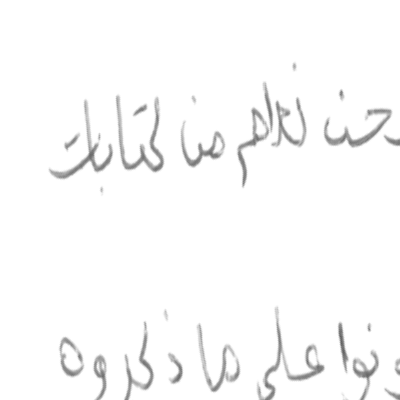 حن نراهم من كتابات
ونوا على ما ذكروه